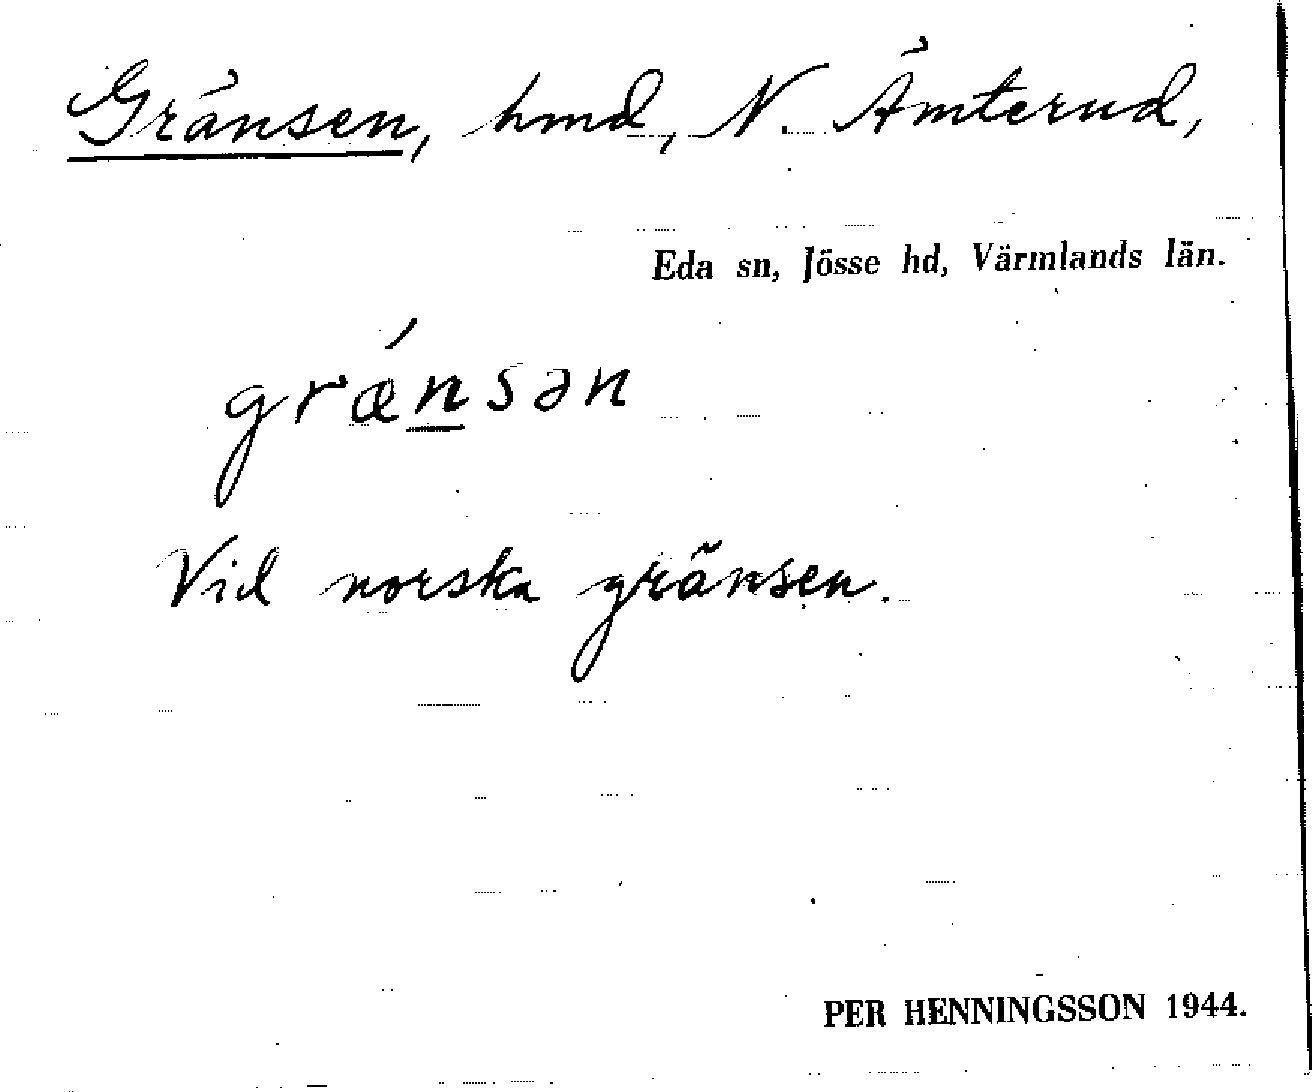 Gränsen, hmd, N. Ämterud,
Eda sn, Jösse hd, Värmlands län.
grǽnsən
Vid norska gränsen.
PER HENNINGSSON 1944.